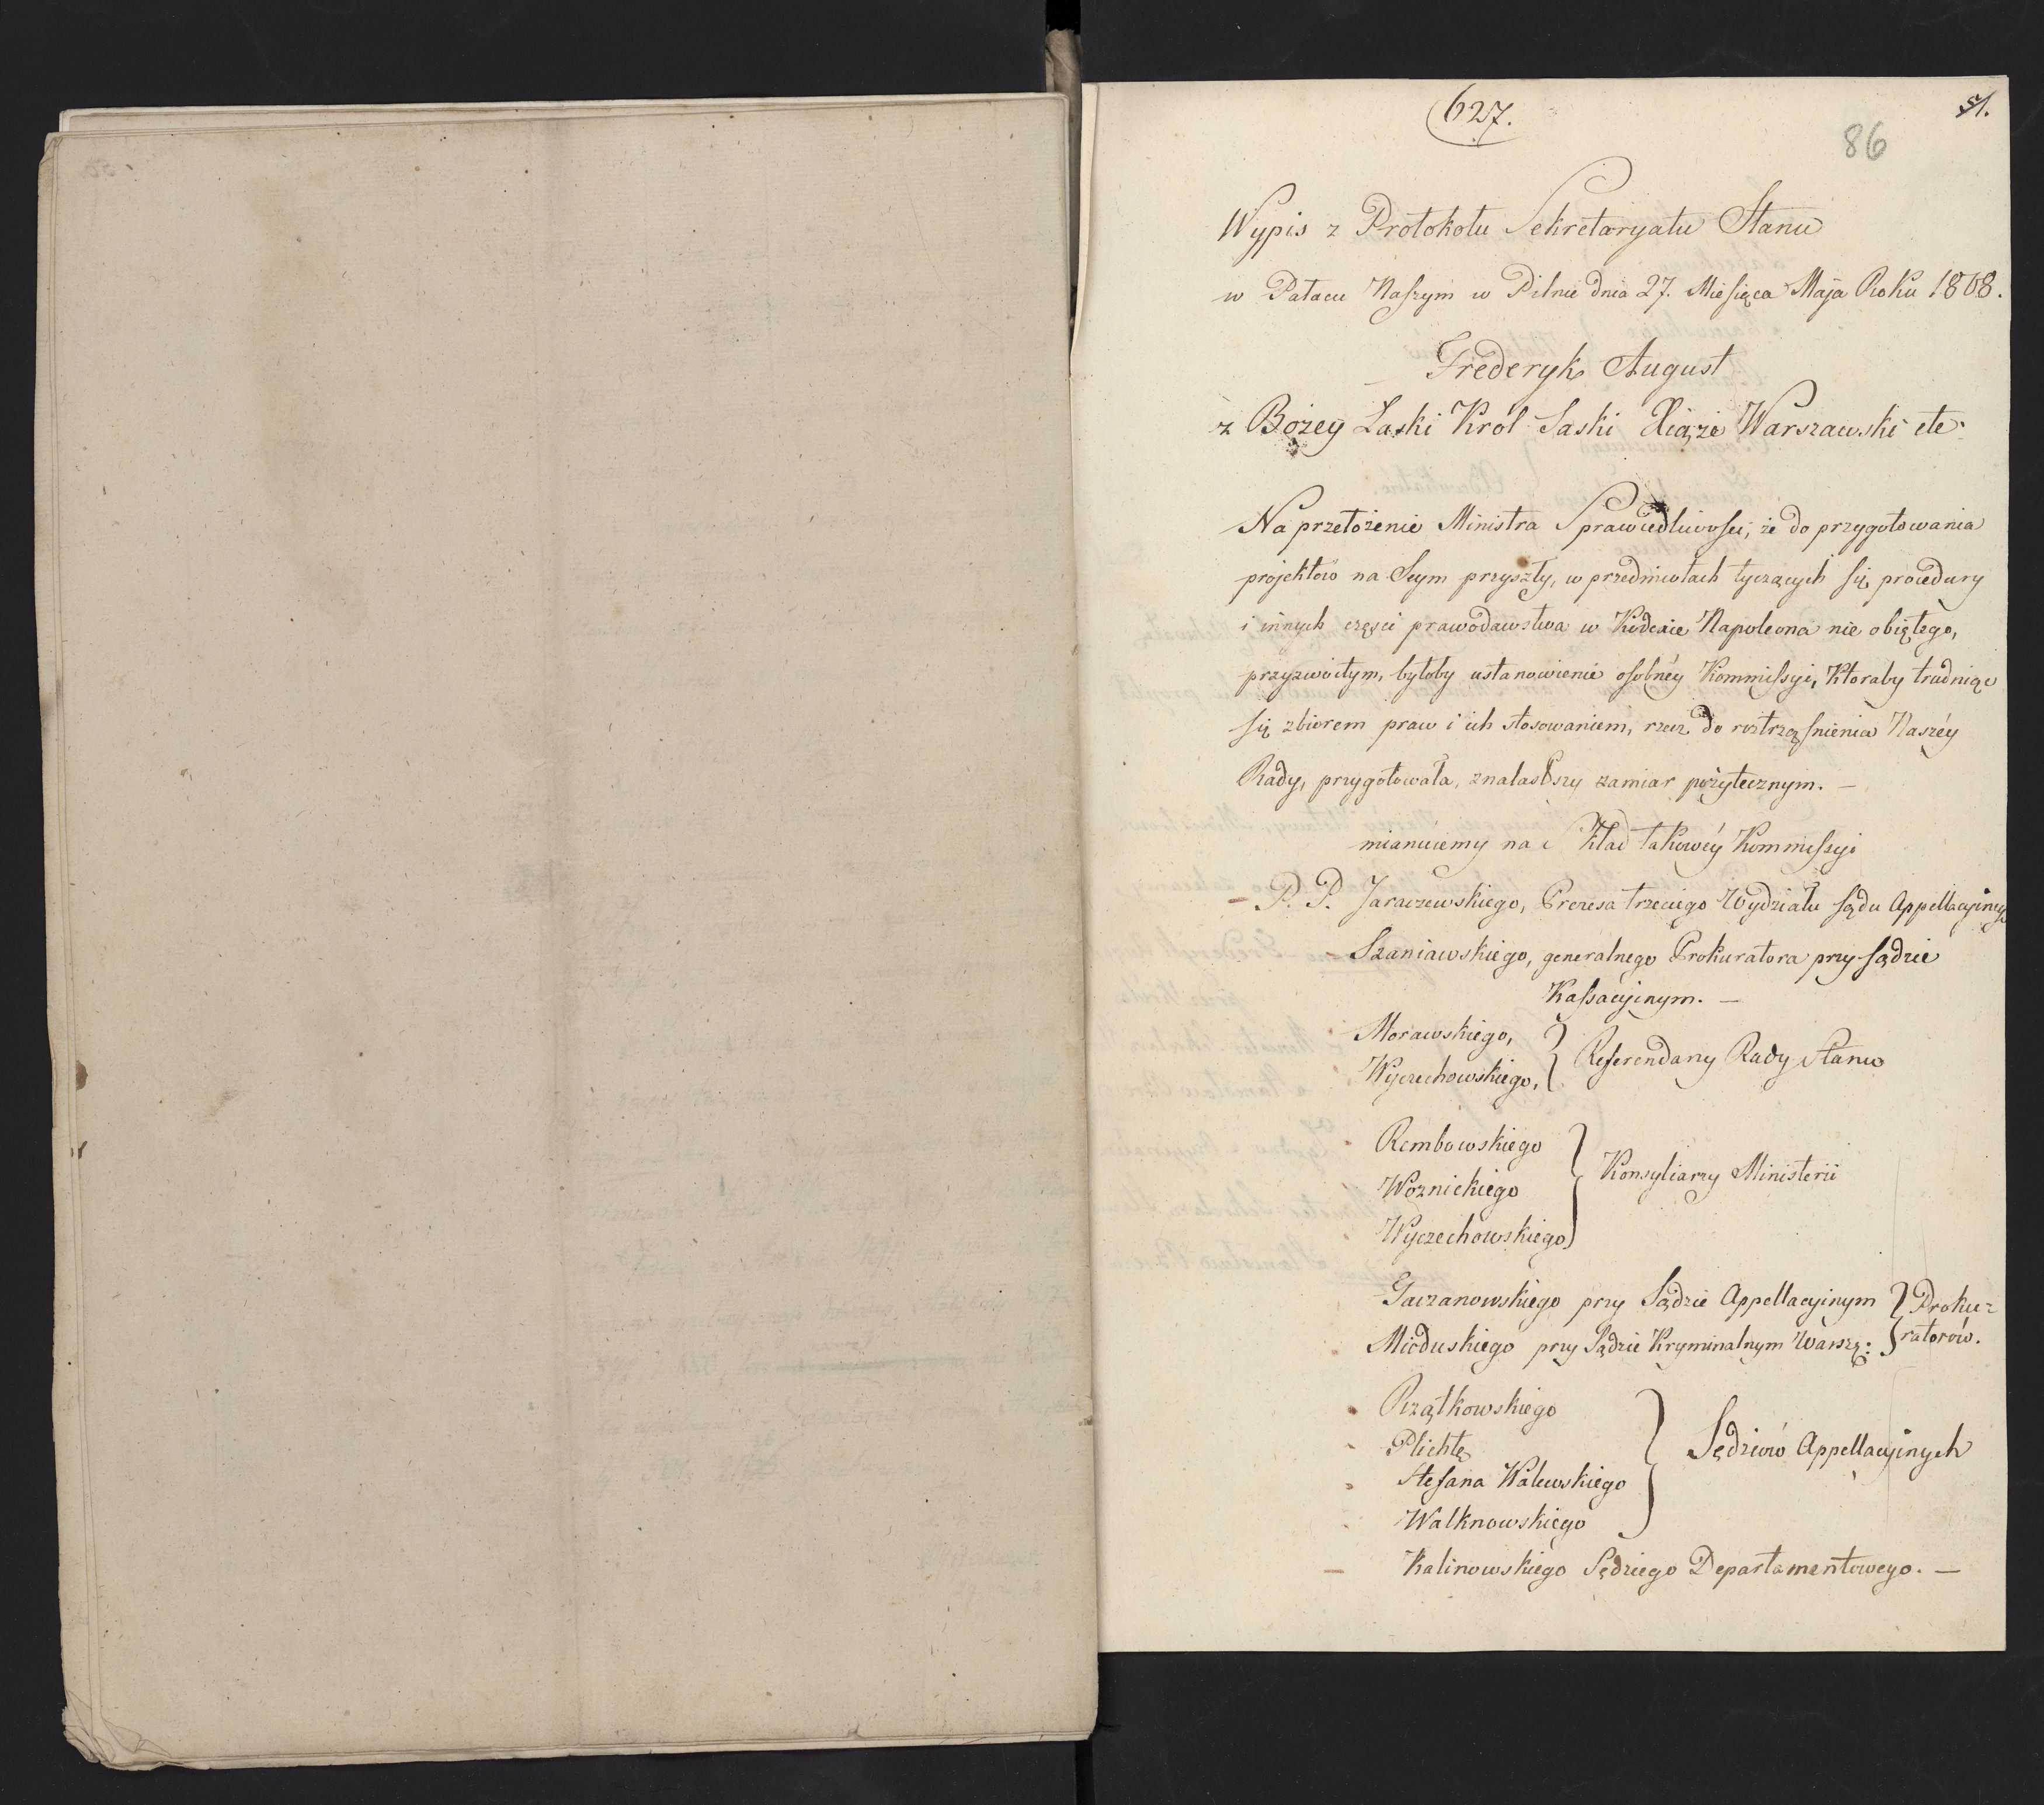 627.
51.
86
Wypis z Protokołu Sekretaryatu Stanu
w Pałacu Naszym w Pilnie dnia 27. Miesiąca Maja Roku 1808.
Frederyk August
z Bożey Łaski Krol Saski Xiąże Warszawski etc.
Na przełożenie Ministra Sprawiedliwości, że do przygotowania
projektow na Seym przyszły, w przedmiotach tyczących się procedury
i innych części prawodawstwa w Kodexie Napoleona nie obiętego,
przyzwoitym, byłoby ustanowienie osobnéy Kommissyi, któraby trudniąc
się zbiorem praw i ich stosowaniem, rzecz do roztrząśnienia Naszéy
Rady, przygotowała, znalazłszy zamiar pożytecznym. —
mianuiemy na Skład takowéy Kommissyi
P. P. Jaraczewskiego, Prezesa trzeciego Wydziału sądu Appellacyinego
Szaniawskiego, generalnego Prokuratora przy sądzie
Kassacyinym. —
Morawskiego,
Wyczechowskiego, } Referendarzy Rady Stanu
Rembowskiego
Woznickiego } Konsyliarzy Ministerii
Wyczechowskiego
Gaczanowskiego przy Sądzie Appellacyinym } Proku-
Mioduskiego przy Sądzie Kryminalnym Warsz: ratorów.
Rzątkowskiego
Plichtę
Stefana Walewskiego } Sędziów Appellacyinych
Walknowskiego
Kalinowskiego Sędziego Departamentowego. —